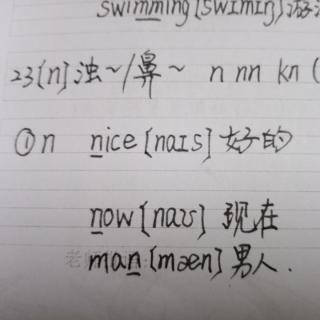 swimming [swɪmɪŋ] 游
23[n] 浊~/鼻~ n nn kn (
①n nice [naɪs] 好的
now [naʊ] 现在
man [mæn] 男人.